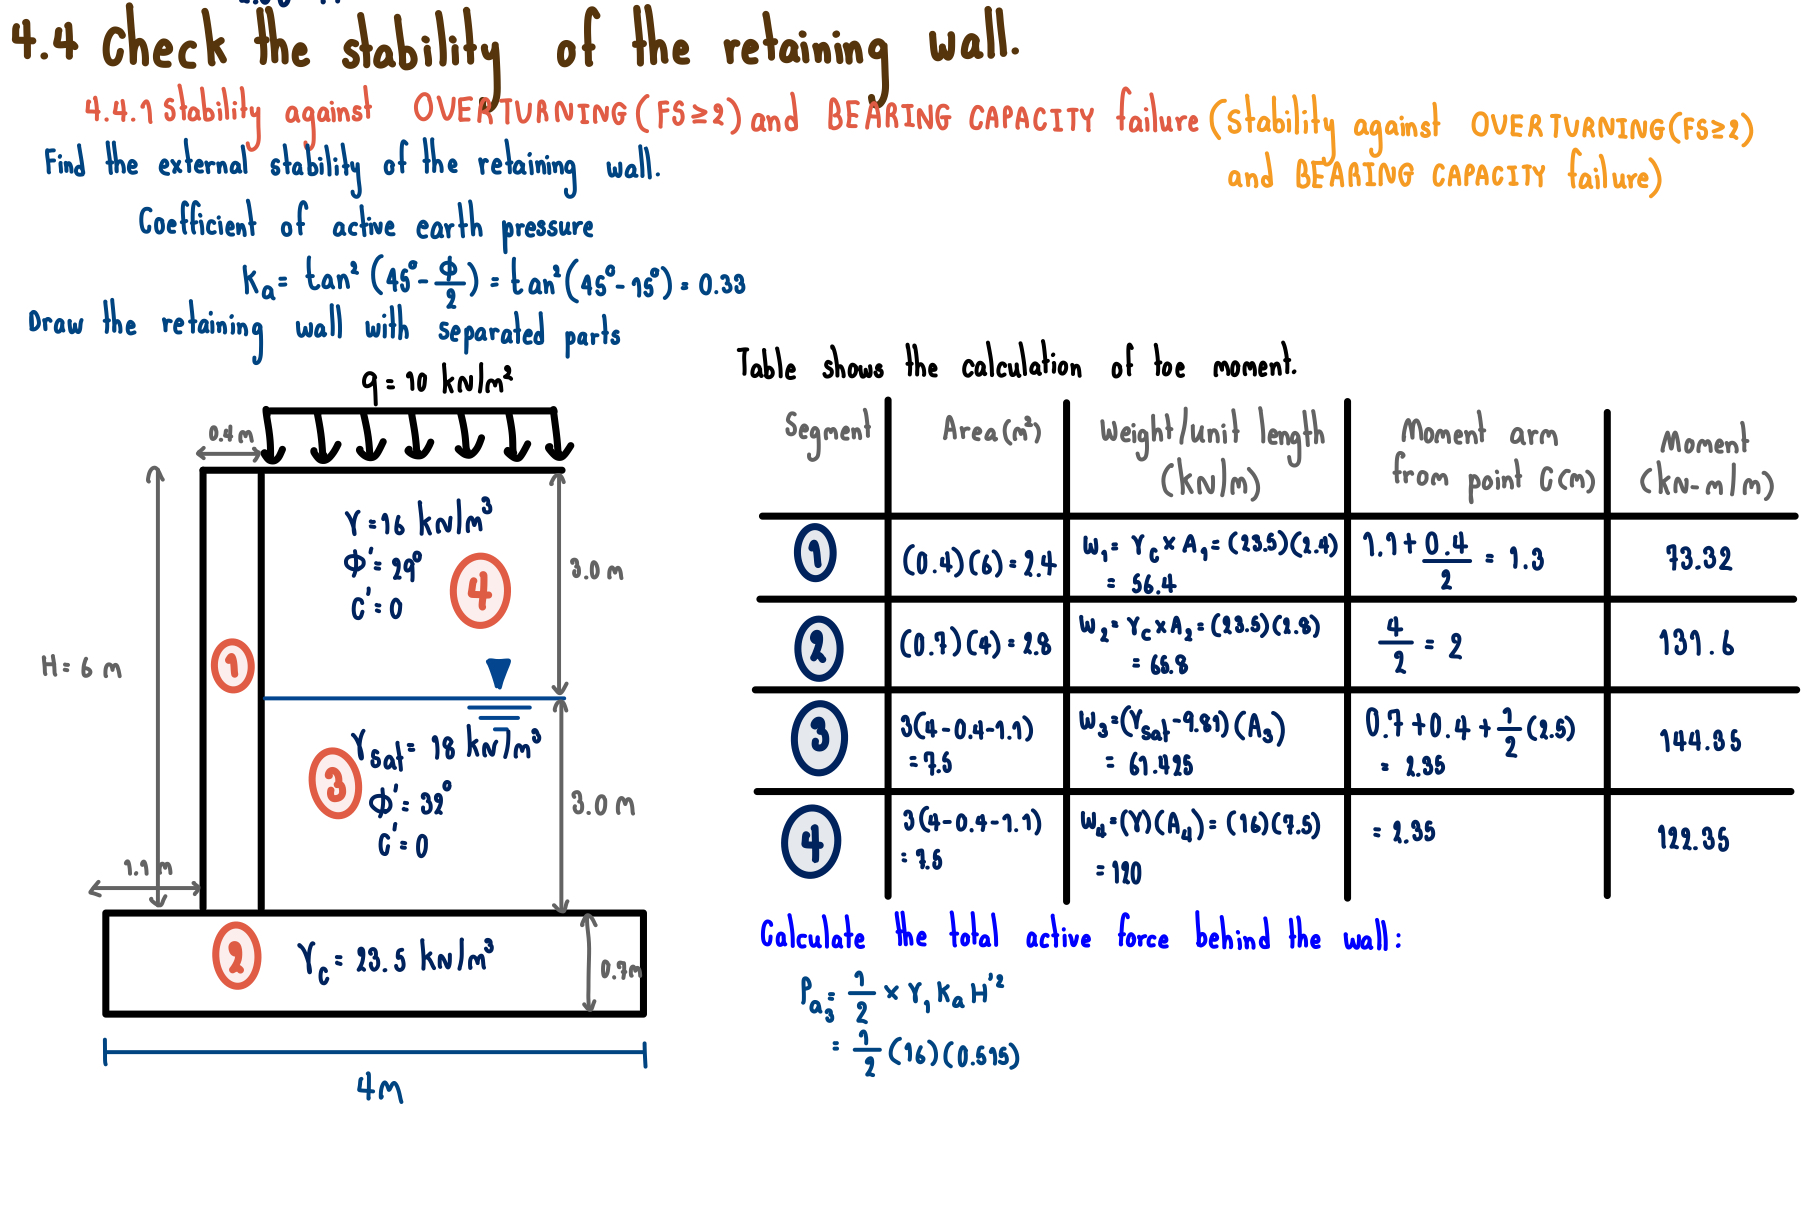 4.4 Check the stability of the retaining wall.
4.4.1 Stability against OVERTURNING (FS≥2) and BEARING CAPACITY failure (Stability against OVERTURNING (FS≥2)
and BEARING CAPACITY failure)
Find the external stability of the retaining wall.
Coefficient of active earth pressure
Ka = tan² (45° - Φ/2) = tan² (45° - 15°) = 0.33
Draw the retaining wall with separated parts
q = 10 kN/m²
0.4 m
γ = 16 kN/m³
Φ' = 29°
C' = 0
4
3.0 m
H = 6 m
1
γsat = 18 kN/m³
3
Φ' = 32°
C' = 0
3.0 m
1.1 m
2
γc = 23.5 kN/m³
0.7m
4m
Table shows the calculation of toe moment.
Segment Area (m²) Weight/unit length (kN/m) Moment arm from point C (m) Moment (kN-m/m)
1 (0.4)(6) = 2.4 W₁ = γc × A₁ = (23.5)(2.4) = 56.4 1.1 + 0.4/2 = 1.3 73.32
2 (0.7)(4) = 2.8 W₂ = γc × A₂ = (23.5)(2.8) = 65.8 4/2 = 2 131.6
3 3(4-0.4-1.1) = 7.5 W₃ = (γsat - 9.81)(A₃) = 61.425 0.7 + 0.4 + 1/2 (2.5) = 2.35 144.35
4 3(4-0.4-1.1) = 7.5 W₄ = (γ)(A₄) = (16)(7.5) = 120 = 2.35 122.35
Calculate the total active force behind the wall:
Pa₃ = 1/2 × γ₁ Ka H'²
= 1/2 (16)(0.515)